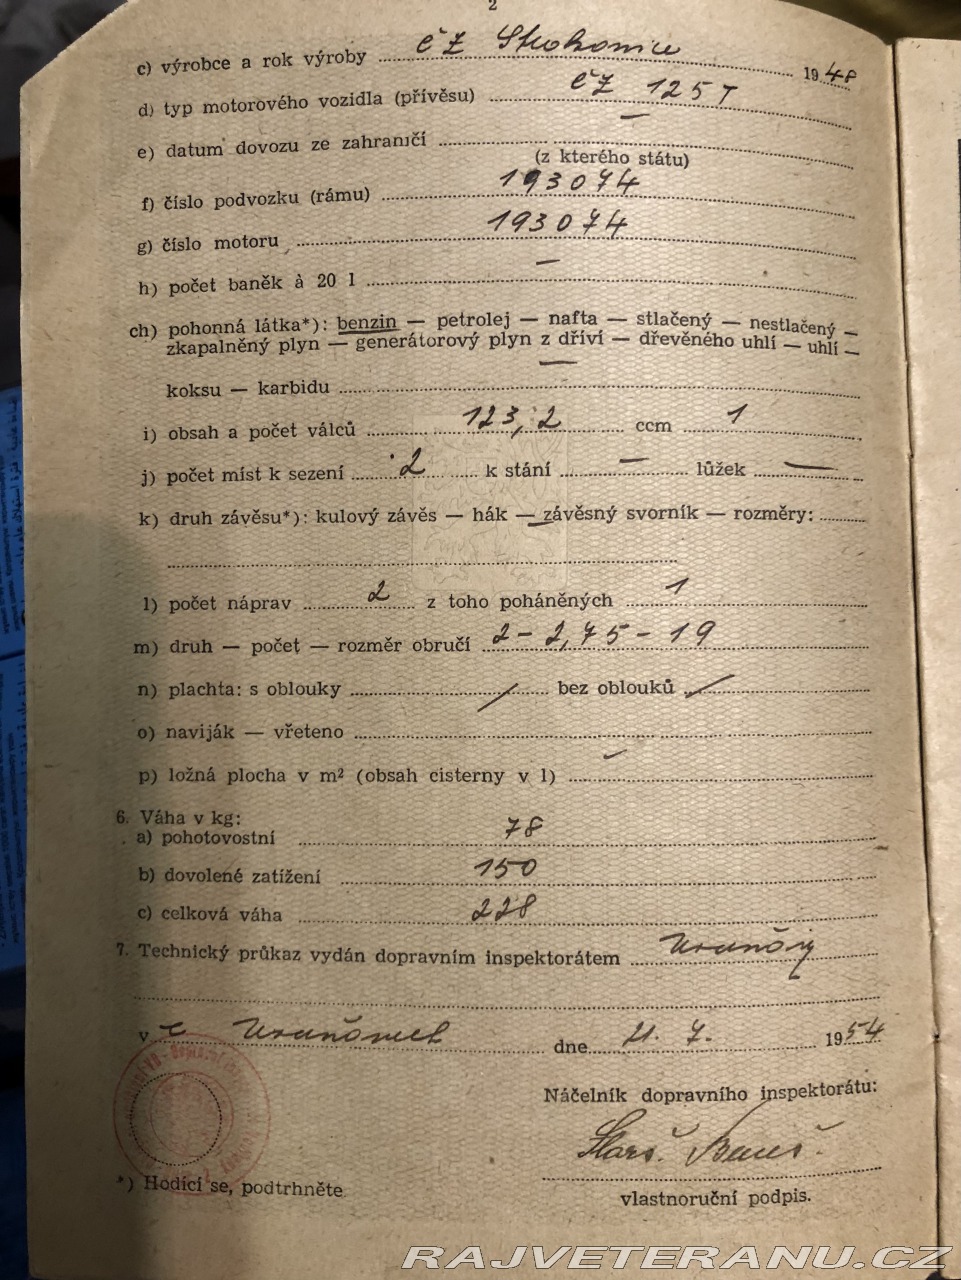 2
c) výrobce a rok výroby ČZ Strakonice 1948
d) typ motorového vozidla (přívěsu) ČZ 125 T
e) datum dovozu ze zahraničí —
(z kterého státu)
f) číslo podvozku (rámu) 193074
g) číslo motoru 193074
h) počet baněk à 20 l —
ch) pohonná látka*): benzin — petrolej — nafta — stlačený — nestlačený —
zkapalněný plyn — generátorový plyn z dříví — dřevěného uhlí — uhlí —
koksu — karbidu —
i) obsah a počet válců 123,2 ccm 1
j) počet míst k sezení 2 k stání — lůžek —
k) druh závěsu*): kulový závěs — hák — závěsný svorník — rozměry:
l) počet náprav 2 z toho poháněných 1
m) druh — počet — rozměr obručí 2 - 2,75 - 19
n) plachta: s oblouky / bez oblouků /
o) naviják — vřeteno
p) ložná plocha v m² (obsah cisterny v l) —
6. Váha v kg:
a) pohotovostní 78
b) dovolené zatížení 150
c) celková váha 228
7. Technický průkaz vydán dopravním inspektorátem
v dne 21. 7. 1954
Náčelník dopravního inspektorátu:
*) Hodící se, podtrhněte
vlastnoruční podpis.
RAJVETERANU.CZ